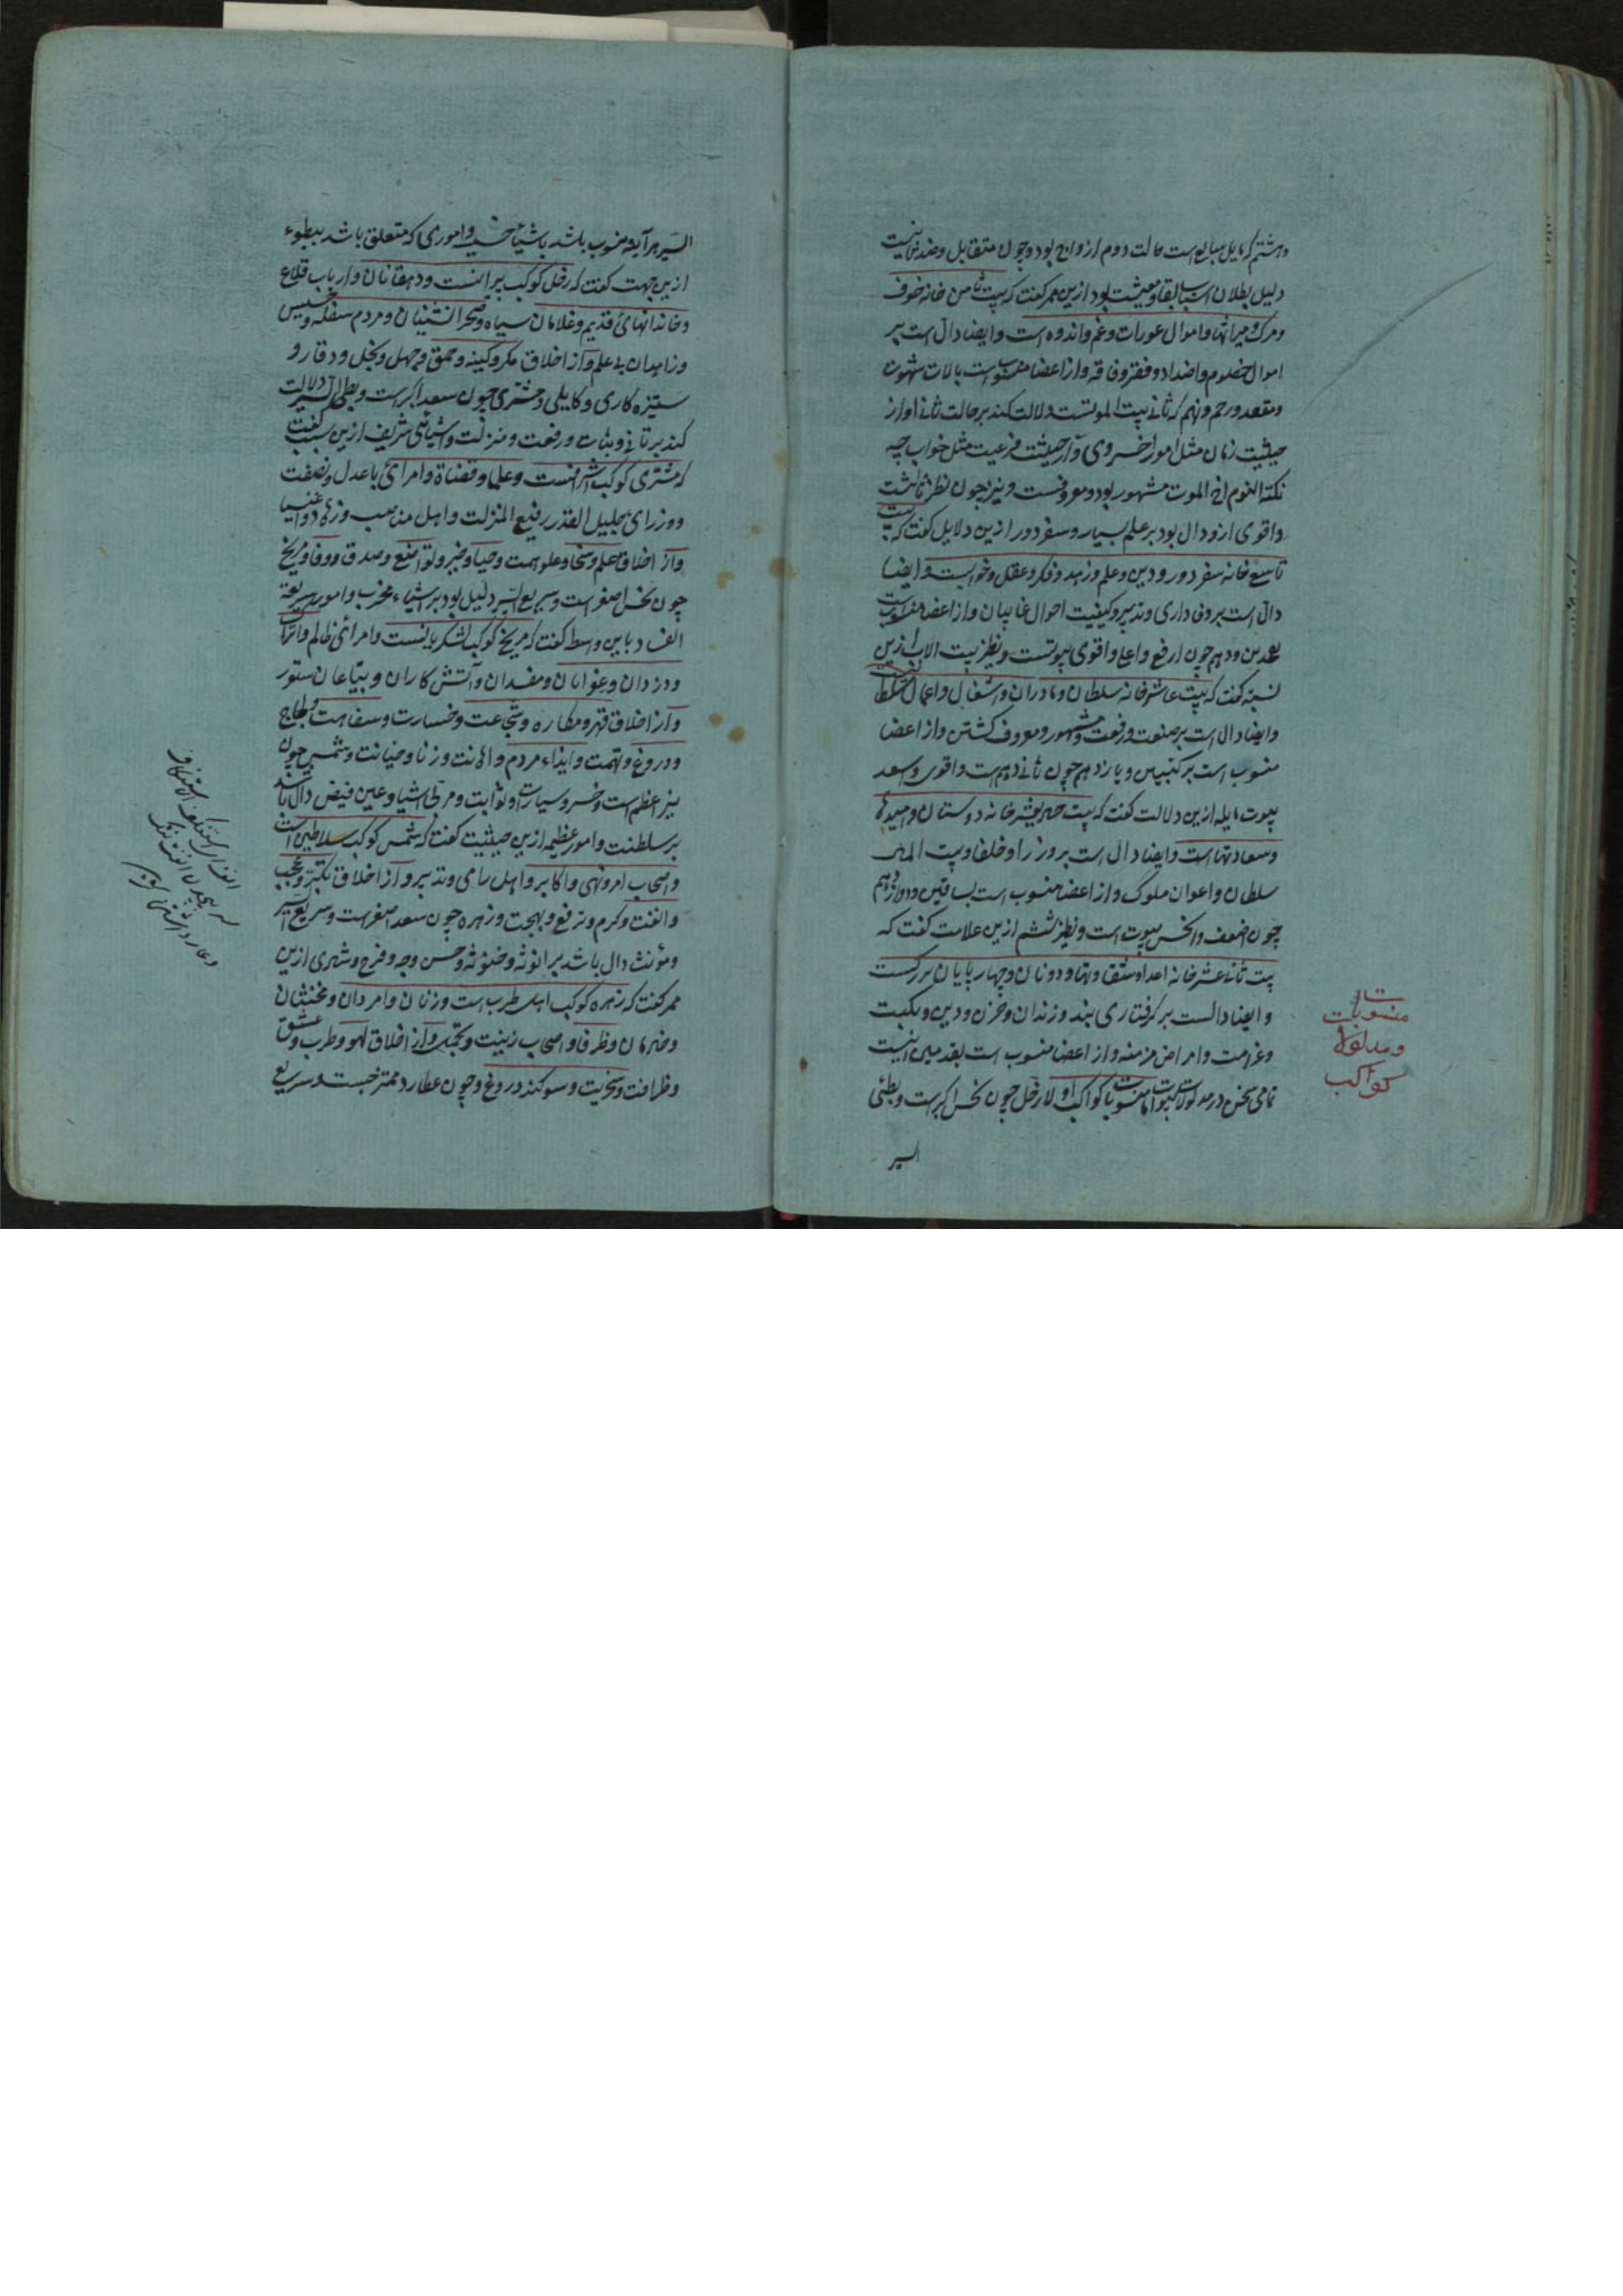 وهشتم که مایل است حالت دوم ازواج بود و چون متقابل وضد ثانیست
دلیل بطلان اسباب بقا ومعیشت بود ازین ممر گفت که بیت ثامن خانه خوف
ومرک ومیراثها واموال عورات وغم واندوه است وایضا دال است بر
اموال خصوم واضداد وفقر وفاقه واز اعضا منسوبست بالات شهوت
ومقعد ورحم ونهم که ثانی بیت الموتست دلالت کند بر حالت ثانی او از
حیثیت زمان مثل امور اخروی واز حیثیت فرعیت مثل خواب چه
نکته النوم اخ الموت مشهور بود ومعروفست ونیز چون نظر ثالثست
واقوی ازو دال بود بر علم بسیار وسفر دور ازین دلایل گفت که بیت
تاسع خانه سفر دور ودین وعلم وزهد وفکر وعقل وخوابست وایضا
دال است بر وفاداری وتدبیر وکیفیت احوال غایبان واز اعضا منسوبست
بفخذین ودهم چون ارفع واعلی واقوی بیوتست ونظیر بیت الاب ازین
نسبته گفت که بیت عاشر خانه سلطان ومادران واشغال واعمال
وایضا دال است بر صنعت ورفعت ومشهور ومعروف کشتن واز اعضا
منسوب است برکبتین ویازدهم چون ثانی دهم است واقوی واسعد
بیوت مایله ازین دلالت گفت که بیت حادیعشر خانه دوستان وامیدها
وسعادتهاست وایضا دال است بر وزرا وخلفا وبیت المال
سلطان واعوان ملوک واز اعضا منسوب است بساقین ودوازدهم
چون اضعف وانحس بیوت است ونظیر ششم ازین علامت گفت که
بیت ثانیعشر خانه اعدا ومشقتها ودونان وچهارپایان بزرکست
وایضا دالست بر گرفتاری بند وزندان وحزن ودین ونکبت
وغرامت وامراض مزمنه واز اعضا منسوب است بقدمین اینست
تمامی سخن در مدلولات بیوت اما منسوبات کواکب اولا زحل چون نحس اکبرست وبطئی
السیر
منسوبات
ومدلولات
کواکب
السیر هرآینه منسوب باشد باشیاء خسیسه واموری که متعلق باشد ببطوء
ازین جهت گفت که زحل کوکب پیرانست ودهقانان وارباب قلاع
وخاندانهای قدیم وغلامان سیاه وصحرانشینان ومردم سفله وخسیس
وزاهدان بی علم واز اخلاق مکر وکینه وحمق وجهل وبخل ووقار و
ستیزه کاری وکاهلی ومشتری چون سعد اکبرست وبطئ السیر دلالت
کند بر تانی وثبات ورفعت ومنزلت واشیائی شریف ازین سبب گفت
که مشتری کوکب اشرافست وعلما وقضاة وامرائ باعدل ونصفت
ووزرای جلیل القدر رفیع المنزلت واهل مناصب وزهاد واغنیا
واز اخلاق حلم وسخا وعلو همت وحیا وخیر وتواضع وصدق ووفا ومریخ
چون نحس اصغر است وسریع السیر دلیل بود بر اشیاء مخرب وامور سریعة
الفساد باین واسطه گفت که مریخ کوکب لشکریانست وامرائی ظالم واتراک
ودزدان وعوانان ومفسدان وآتش کاران وبیاعان ستور
واز اخلاق قهر ومکاره وشجاعت وخسارت وسفاهت ولجاج
ودروغ وتهمت وایذاء مردم واهانت وزنا وخیانت وشمس چون
نیر اعظم است وخسرو سیارات وثوابت ومربی اشیا وعین فیض دال باشد
بر سلطنت وامور عظیمه ازین حیثیت گفت که شمس کوکب سلاطین است
واصحاب امر ونهی واکابر واهل رای وتدبیر واز اخلاق تکبر وعجب
والفت وکرم وترفع وبهجت وزهره چون سعد اصغر است وسریع السیر
ومؤنث دال باشد بر انوثه وخنوثه وحسن وجه وفرح وشهری ازین
ممر گفت که زهره کوکب اهل طرب است وزنان وامردان ومخنثان
وخادمان وظرفا واصحاب زینت وتجمل واز اخلاق لهو وطرب وعشق
وظرافت وسخریت وسوکند دروغ وچون عطارد ممتزجست وسریع